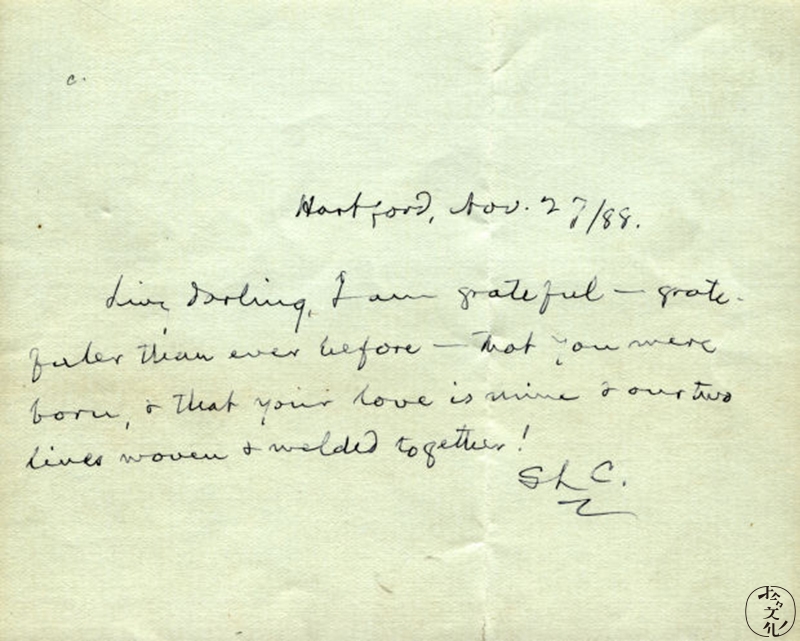 c.
Hartford, Nov. 27/88.
Livy darling, I am grateful — grate-
fuler than ever before — that you were
born, & that your love is mine & our two
lives woven & welded together!
SLC.
拾文化